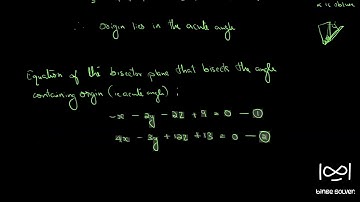 α is obtuse
∴ origin lies in the acute angle
Equation of the bisector plane that bisects the angle
containing origin (ie acute angle) ;
-x - 2y - 2z + 9 = 0 — ①
4x - 3y + 12z + 13 = 0 — ②
binee solver.